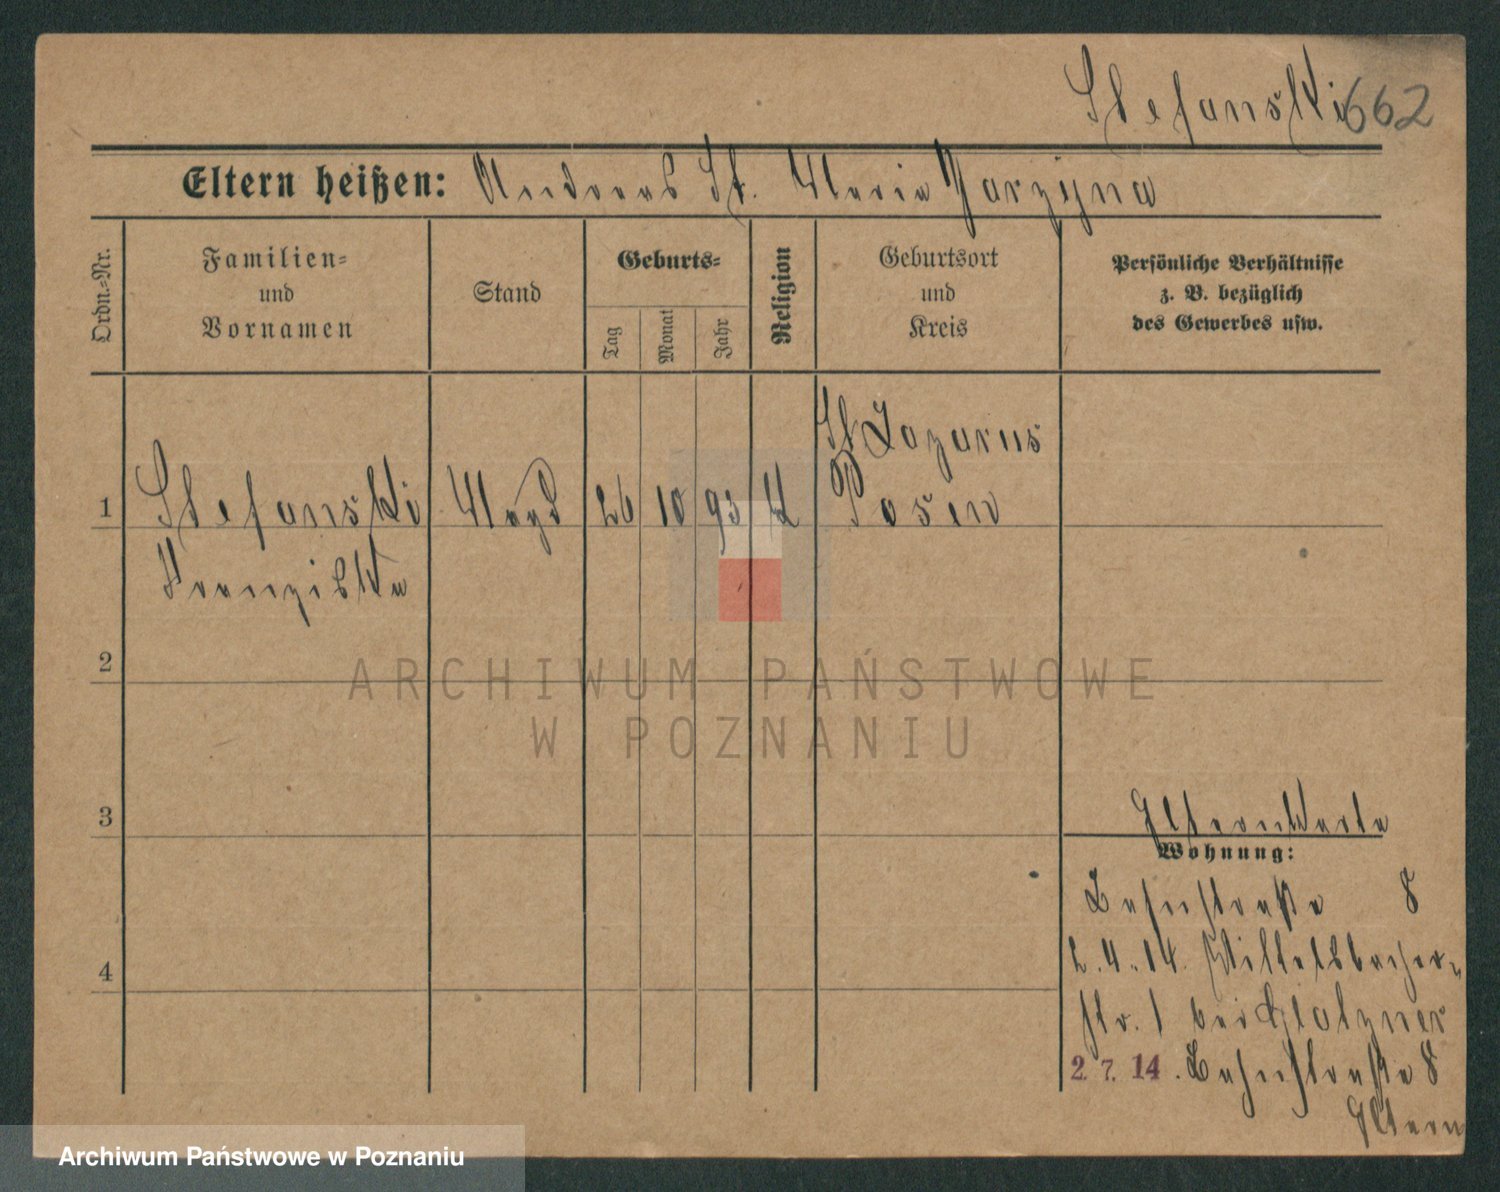 Stefanski 662
Eltern heißen: Andreas St. Maria Jarzyna
Ordn.-Nr.
Familien-
und
Vornamen
Stand
Geburts-
Tag
Monat
Jahr
Religion
Geburtsort
und
Kreis
Persönliche Verhältnisse
z. B. bezüglich
des Gewerbes usw.
St Lazarus
1 Stefanski Magd 26 10 93 K Posen
Franziska
2
ARCHIWUM PAŃSTWOWE
W POZNANIU
3
Elternkarte
Wohnung:
Bahnstraße 8
4
2.4.14. Mittelsbacher-
str. 1 bei
2. 7. 14. Bahnstraße 8
Eltern
Archiwum Państwowe w Poznaniu